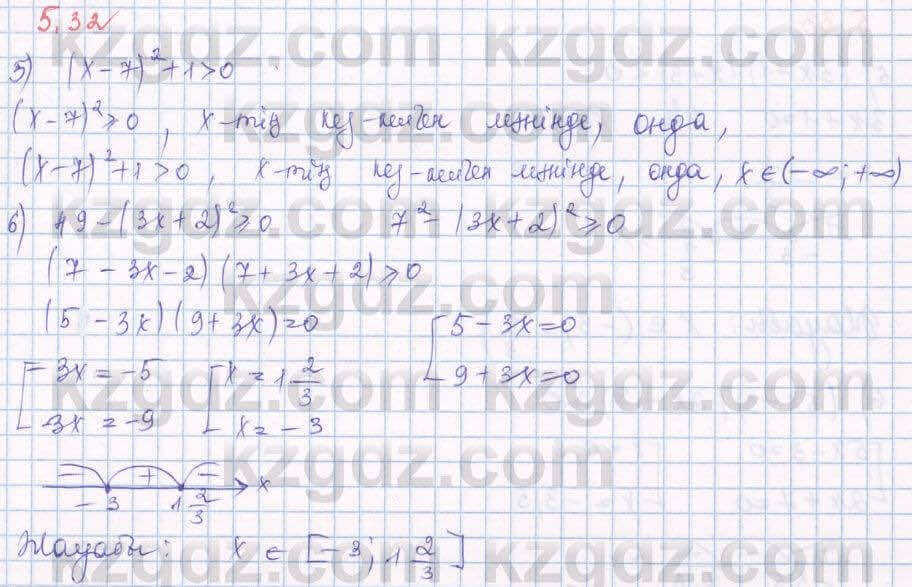 5.32
5) (x-7)²+1>0
(x-7)²≥0, x-тің кез-келген мәнінде, онда,
(x-7)²+1>0, x-тің кез-келген мәнінде, онда, x∈(-∞;+∞)
6) 49-(3x+2)²≥0 7²-(3x+2)²≥0
(7-3x-2)(7+3x+2)≥0
(5-3x)(9+3x)=0 [5-3x=0
9+3x=0
[-3x=-5 [x=1 2/3
3x=-9 x=-3
- + - x
-3 1 2/3
Жауабы: x∈[-3; 1 2/3]
kzgdz.com kzgdz.com
kzgdz.com kzgdz.com
kzgdz.com kzgdz.com
kzgdz.com kzgdz.com
kzgdz.com kzgdz.com
kzgdz.com kzgdz.com